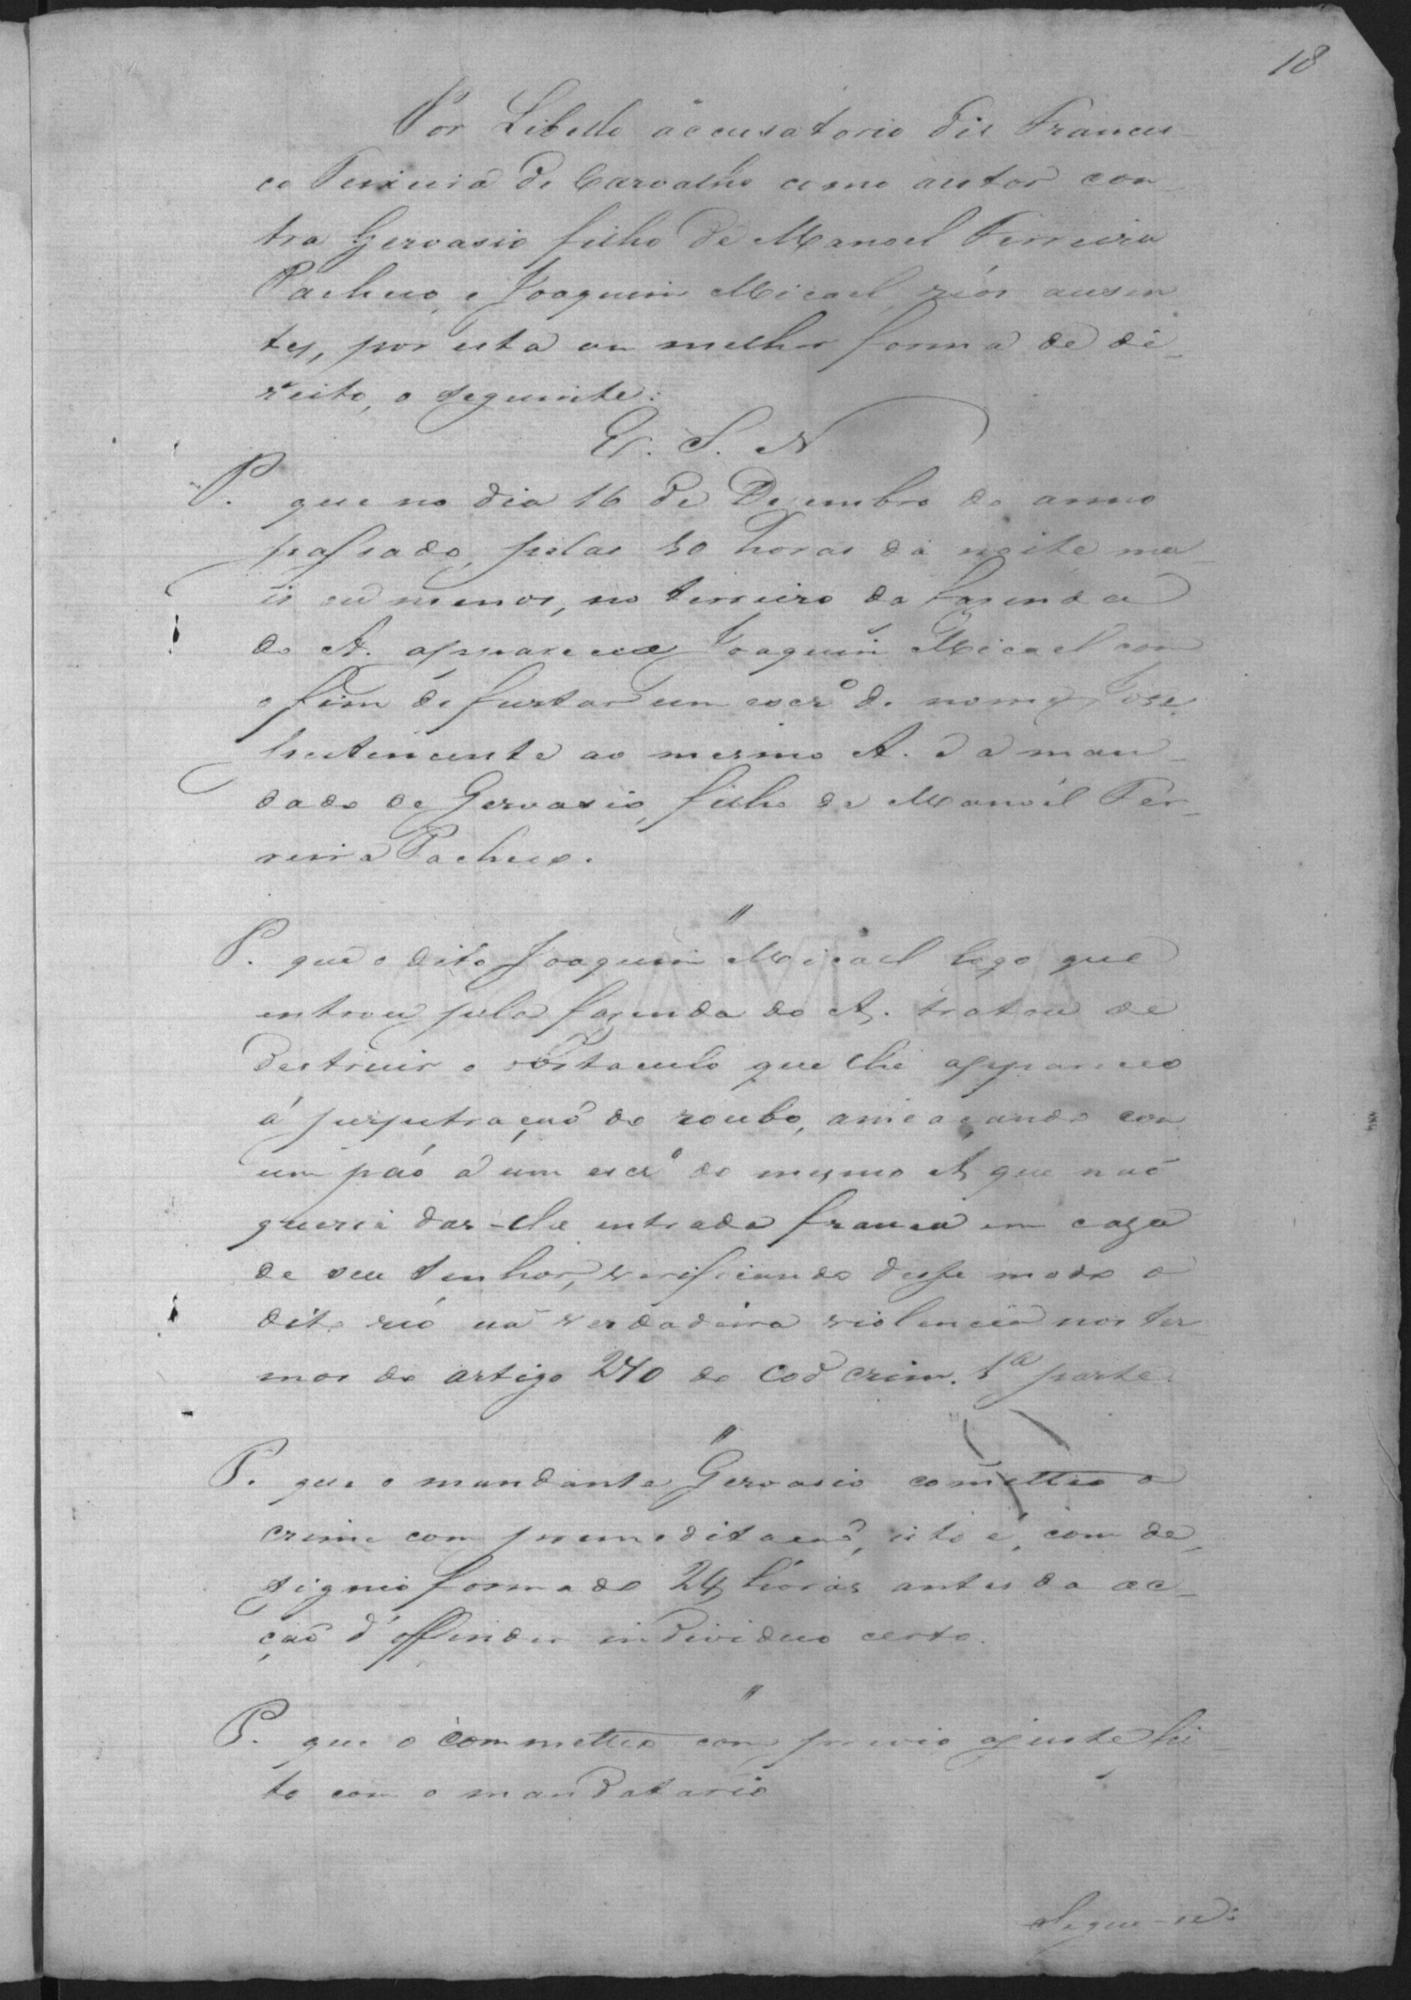 18
Por Libello accusatorio diz Francis-
co Teixeira de Carvalho como autor con-
tra Gervasio filho de Manoel Ferreira
Pacheco, e Joaquim Micael, réos ausen
tes, por esta ou melhor forma de di-
reito, o seguinte:
E. S. N.
P. que no dia 16 de Dezembro do anno
passado, pelas 10 horas da noite ma-
is ou menos, no terreiro da fazenda
do A. appareceu Joaquim Micael com
o fim de furtar um escrº de nome José,
pertencente ao mesmo A. e a man-
dado de Gervasio, filho de Manoel Fer-
reira Pacheco.
"
P. que o dito Joaquim Micael logo que
entrou pela fazenda do A. tratou de
destruir o obstaculo que lhe appareceo
á perpetração do roubo, ameaçando com
um páo a um escrº do mesmo A. que não
queria dar-lhe entrada franca em caza
de seu senhor, verificando desse modo o
dito réo uã verdadeira violencia nos ter
mos do artigo 270 do Cod crim. 1ª parte.
"
P. que o mandante Gervasio cometteo o
crime com premeditação, isto é, com de-
signio formado 24 horas antes da ac-
ção d'offender individuo certo.
"
P. que o commetteo com previo ajuste fei-
to com o mandatario
Segue-se: